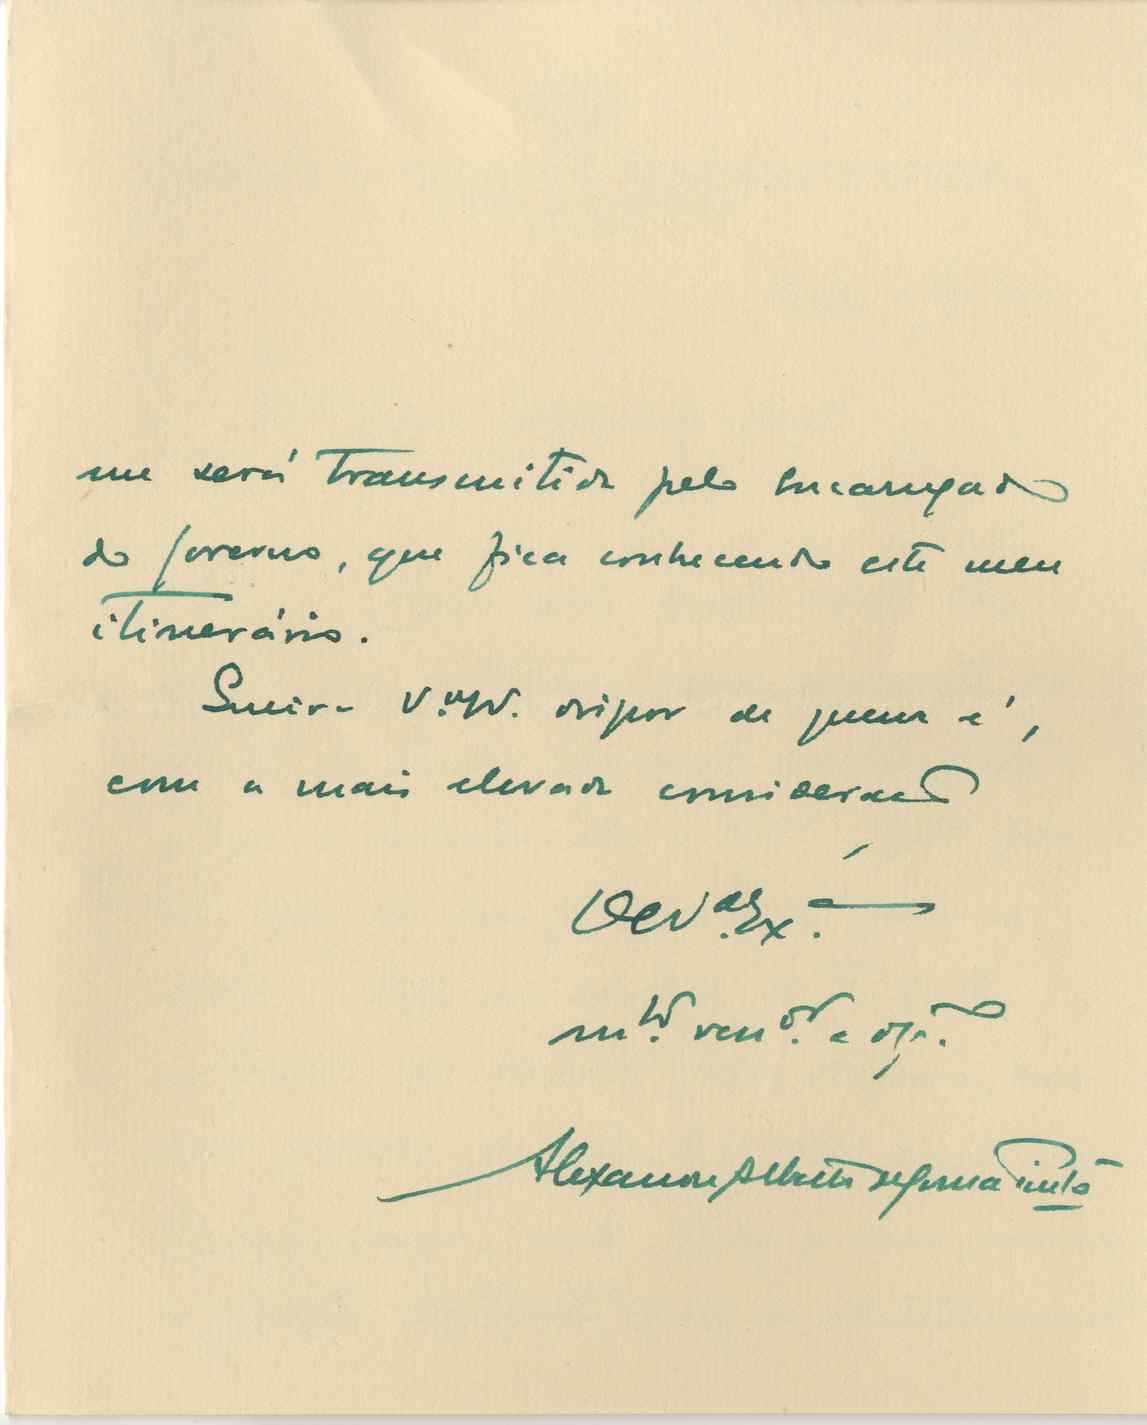 me será transmitida pelo Encarregado
do Governo, que fica conhecendo este meu
itinerário.
Queira V. Exª. dispor de quem é,
com a mais elevada consideração
De V. Exª.
mto. venor. e
Alexandre Alberto de Sousa Pinto